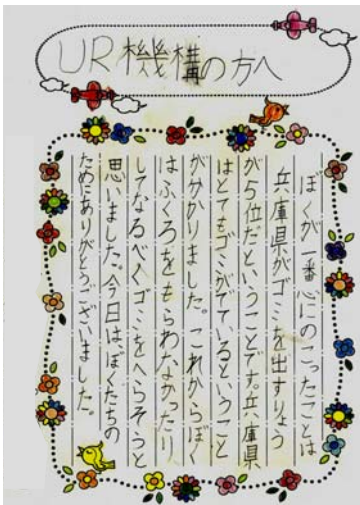 UR機構の方へ
ぼくが一番心にのこったことは
兵庫県がゴミを出すりょう
が5位だということです。兵庫県
はとてもゴミがでているということ
が分かりました。これからぼく
はふくろをもらわなかったり
してなるべくゴミをへらそうと
思いました。今日は、ぼくたちの
ためにありがとうございました。